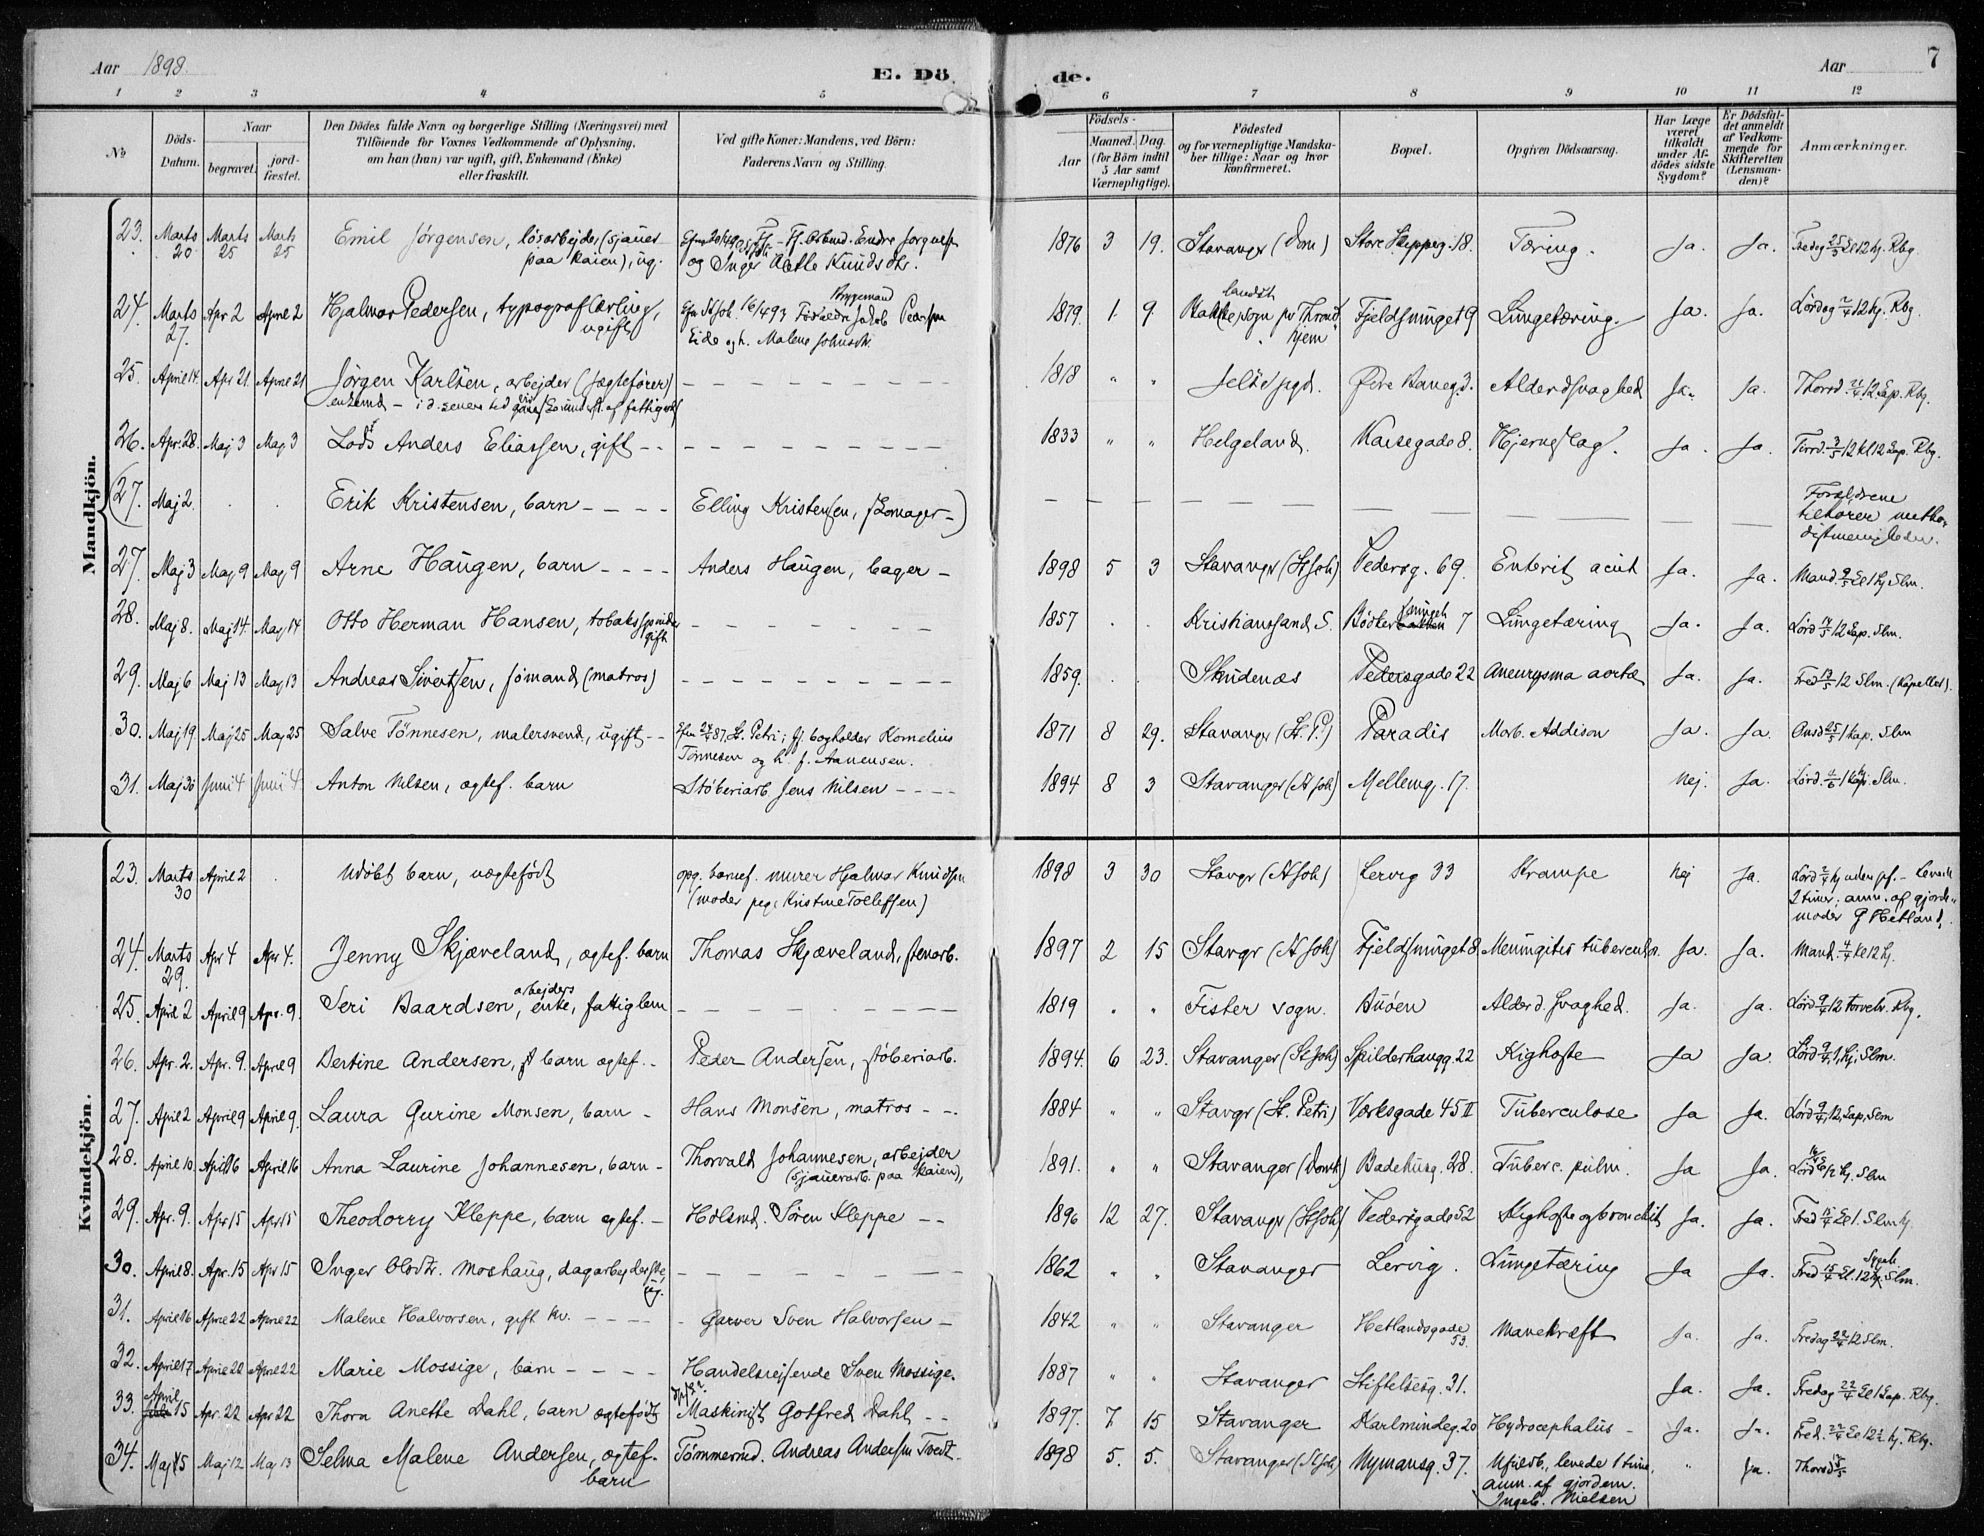 Aar 1898.
E. Dö de.
Aar 7
1 2 3 4 5 6 7 8 9 10 11 12
No
Döds-Datum.
Naar
begravet.
jord-fæstet.
Den Dödes fulde Navn og borgerlige Stilling (Næringsvei) med
Tilföiende for Voxnes Vedkommende af Oplysning,
om han (hun) var ugift, gift, Enkemand (Enke)
eller fraskilt.
Ved gifte Koner: Mandens, ved Börn:
Faderens Navn og Stilling.
Födsels-
Aar
Maaned. Dag.
(for Börn indtil
5 Aar samt
Værnepligtige).
Födested
og for værnepligtige Mandskaber tillige: Naar og hvor
konfirmeret.
Bopæl.
Opgiven Dödsaarsag.
Har Læge
været
tilkaldt
under Afdödes sidste
Sygdom?
Er Dödsfaldet anmeldt
af Vedkommende for
Skifteretten
(Lensmanden)?
Anmærkninger.
Mandkjön.
23. Marts 20 Marts 25 Marts 25 Emil Jörgensen, lösarbejder (sjauer paa kaien), ug. 1876 3 19. Stavanger (Dom) Store Skipperg. 18. Tæring. Ja. Ja. Fredag 25/3 kl 12 kj. Rbg.
24. Marts 27. Apr 2 April 2 Hjalmar Pedersen, typograflærling, ugift 1879. 1 9. Fjeldsmuget 9 Lungetæring. Ja. Ja. Lördag 2/4 12 kj. Rbg.
25. April 14. Apr 21. April 21 Jörgen Karlsen, arbejder (jægtefører) 1818 " " Jelöe Øvre Baneg. 3. Alderdsvaghed Ja. Ja. Thorsd. 21/4 12 kap. Rbg.
26. Apr. 28. Maj 3 Maj 3 Lods Anders Eliassen, gift 1833 " " Helgeland. Karsegade 8. Hjerneslag. Ja. Ja. Tirsd. 3/5 12 kap. Rbg.
(27. Maj 2. Erik Kristensen, barn Elling Kristensen, skomager) Forældrene tilhører methodistmenigheden.
27. Maj 3 Maj 9 Maj 9 Arne Haugen, barn Anders Haugen, bager 1898 5 3 Stavanger (St Joh) Pedersg. 69. Enterit acut Ja. Ja. Mand. 9/5 kl 1 kj Slm.
28. Maj 8. Maj 14. Maj 14 Otto Herman Hansen, tobaksspinder gift 1857 Kristianssand S. Bödker 7 Lungetæring Ja. Ja. Lörd 14/5 12 kap. Slm.
29. Maj 6 Maj 13 Maj 13 Andreas Sivertsen, sömand (matros) 1859. Skudenæs Pedersgade 22 Aneurysma aortæ Ja. Ja. Fred 13/5 12 Slm. (Kapellet).
30. Maj 19 Maj 25 Maj 25 Salve Tönnesen, malersvend, ugift St. Petri; Ff. bogholder Kornelius Tönnesen og h. f. Aanensen. 1871 8 29. Stavanger (St. P.) Paradis Morb. Addison Ja. Ja. Onsd 25/5 1 kap. Slm
31. Maj 30 Juni 4 Juni 4 Anton Nilsen, ægtef. barn Stöberiarb Jens Nilsen 1894 8 3 Stavanger (St Joh) Mellemg. 17. Nej. Ja. Lörd. 4/6 1 Slm.
Kvindekjön.
23. Marts 30 April 2 Udöbt barn, uægtefödt opg. barnef. murer Hjalmar Knudsen (moder pige Kristine Tollefsen) 1898 3 30 Stavgr (St Joh) Lervig 33 Krampe Nej Ja. Lörd 2/4 kj uden pf. - Levede 2 timer; anm. af gjordemoder G Hetland.
24. Marts 29. Apr 4 Apr 4. Jenny Skjæveland, ægtef. barn Thomas Skjæveland, stenarb. 1897 2 15 Stavgr (St Joh) Fjeldsmuget 8 Meningitis tuberculos. Ja. Ja. Mand. 4/4 kl 12 kj.
25. April 2 April 9 Apr. 9. Seri Baardsen, arbejders enke, fattiglem 1819 " " Fister sogn. Buöen Alderd. svaghed. Ja. Ja. Lörd 9/4 12 Rbg.
26. Apr. 2. Apr. 9. April 9 Bertine Andersen, barn ægtef. Peder Andersen, stöberiarb. 1894. 6 23. Stavanger (St Joh) Spilderhaugg. 22 Kighoste Ja Ja Lörd 9/4, 1, kj. Slm.
27. April 2 April 9 April 9. Laura Gurine Monsen, barn Hans Monsen, matros 1884 " " Stavgr (St. Petri) Verksgade 45 II Tuberculose Ja Ja. Lörd 9/4, 12, kap, Slm
28. April 10 April 16 April 16 Anna Laurine Johannesen, barn Thorvald Johannesen, arbejder (sjauerarb. paa kaien), 1891. " " Stavanger (Domk) Badehusg. 28. Tuberc. pulm. Ja Ja. Lörd kj. Slm
29. Apr. 9. Apr 15 Apr 15 Theodorry Kleppe, barn ægtef. Hdlsmd. Sören Kleppe 1896 12 27. Stavanger (St Joh) Pedersgade 52 Kighoste og bronchit Ja. Ja. Fred 15/4 kl 1. Slm kj.
30. April 8. Apr. 15 Apr 15 Inger Olsdtr. Moshaug, dagarbejderske, ug. 1862 " " Stavanger Lervig. Lungetæring Ja Ja. Fred 15/4 kl. 12 Slm.
31. April 16 April 22 April 22 Malene Halvorsen, gift kv. Garver Sven Halvorsen 1842 " " Stavanger Hetlandsgade 53. Mavekræft Ja. Ja. Fredag 22/4 12 Slm.
32. April 17 April 22 April 22 Marie Mossige, barn Handelsrejsende Sven Mossige. 1887 " " Stavanger Stiftelsesg. 31. Ja. Ja. Fredag 22/4 kl 1 kap. Rbg.
33. April 15 Apr. 22 Apr 22 Thora Anette Dahl, barn ægtefödt Maskinist Gotfred Dahl 1897. 7 15 Stavanger Karlmindeg. 20 Hydrocephalus Ja. Ja. Fred. 22/4 kl 12½ kj. Rbg.
34. Maj 5 Maj 12 Maj 13 Selma Malene Andersen, ægtef. barn Tömmermd. Andreas Andersen Tvedt. 1898 5. 5. Stavanger (St Joh) Nymansg. 37. levede 1 time. anm. af gjordem. Ingeb. Nielsen " Ja. Thorsd 12/5